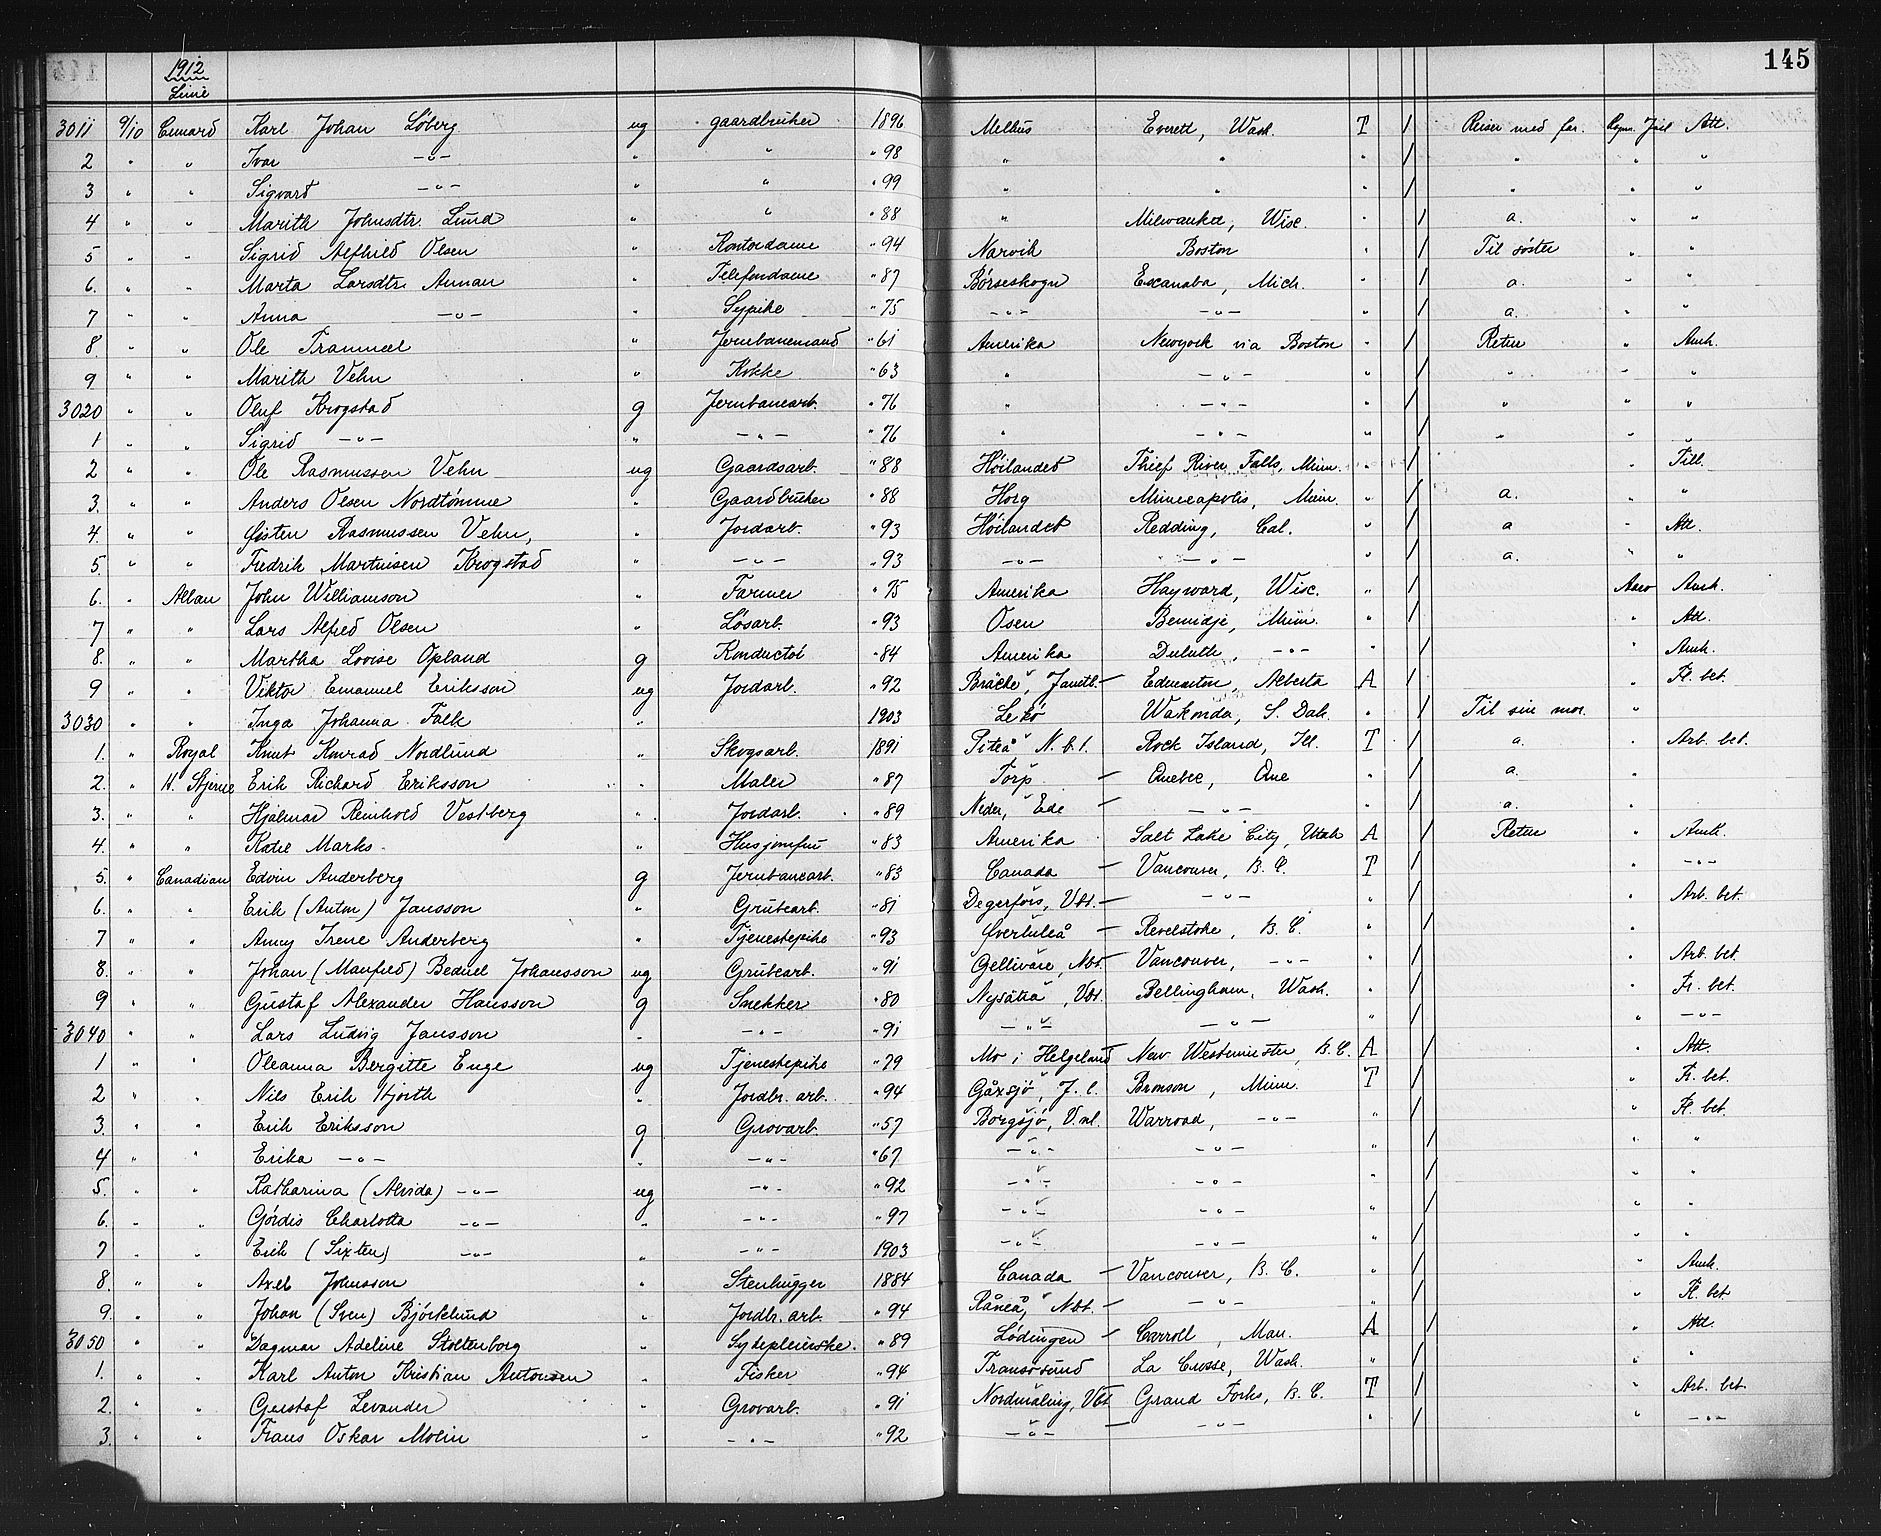 1912 145
Linie
3011 9/10 Cunard Karl Johan Löberg ug gaardbruker 1896 Melhus Everett, Wash. T / Reiser med far. Att.
2 " " Ivar -"- " " " 98 " " " / " " "
3 " " Sigvart -"- " " " 99 " " " / " " "
4 " " Marith Johnsdtr. Lund " " " 88 " Milwaukee, Wisc. " / a. " "
5 " " Sigrid Alfhild Olsen " Kontordame " 94 Narvik Boston " / Til söster " "
6. " " Marta Larsdtr. Annan " Telefondame " 87 Börseskogn Escanaba, Mich. " / a. " "
7 " " Anna -"- " Sypike " 75 -"- -"- " / a. " "
8 " " Ole Tranmæl " Jernbanemand " 61 Amerika Newyork via Boston " / Retur " Amk.
9 " " Marith Vehn " Kokke " 63 " -"- " / " " "
3020 " " Oluf Krogstad g Jernbanearb. " 76 " -"- " / " " "
1 " " Sigrid -"- " -"- " 76 " -"- " / " " "
2 " " Ole Rasmussen Vehn ug Gaardsarb. " 88 Höilandet Thief River Falls, Minn. " / " Till.
3. " " Anders Olsen Nordtömme " Gaardbruker " 88 Horg Minneapolis, Minn. " / a. " "
4. " " Østen Rasmussen Vehn, " Jordarb. " 93 Höilandet Redding, Cal. " / a " Att.
5. " " Fredrik Martinsen Krogstad " -"- " 93 -"- -"- " / a. " "
6. " Allan John Williamson " Farmer " 75 Amerika Hayward, Wisc. " / Amk.
7 " " Lars Alfred Olsen " Lösarb. " 93 Osen Bemidje, Minn. " / " Att.
8. " " Martha Lovise Opland g Konductör " 84 Amerika Duluth, -"- " / " Amk.
9 " " Viktor Emanuel Eriksson ug Jordarb. " 92 Bräcke, Jämtl. - Edmonton, Alberta A / " Fl. bet.
3030 " " Inga Johanna Falk " 1903 Lekö Wakonda, S. Dak. " / Til sin mor. "
1. " Royal Knut Konrad Nordlund " Skogsarb. 1891 Piteå N.b.l. Rock Island, Ill. T / a. " Arb. bet.
2. " H. Stjerne Erik Richard Eriksson " Maler " 87 Torp - Quebec, Que " / a. "
3. " " Hjalmar Reinhold Vestberg " Jordarb. " 89 Neder, Ede - -"- " / a. "
4. " " Katie Marks " Husjomfru " 83 Amerika Salt Lake City, Utah A / Retur " Amk.
5. " Canadian Edvin Anderberg g Jernbanearb. " 83 Canada - Vancouver, B. C. T / " -"-
6. " " Erik (Anton) Jansson " Grubearb. " 81 Degerfors, Vbt. - -"- " / " Arb. bet.
7 " " Anny Irene Anderberg " Tjenestepike " 93 Øverluleå - Revelstoke, B. C. " / "
8. " " Johan (Manfred) Beduel Johansson ug Grubearb. " 91 Gellivare, Nbt. - Vancouver, -"- " / " Arb. bet.
9 " " Gustaf Alexander Hansson g Snekker " 80 Nysätra, Vbt. Bellingham, Wash. " / " Fr. bet.
3040 " " Lars Ludvig Jansson " -"- " 91 -"- -"- " / " -"-
1 " " Oleanna Bergitte Enge ug Tjenestepike " 79 Mo i Helgeland New Westminster, B. C. A / " Att.
2 " " Nils Erik Hjorth " Jordbr. arb. " 94 Gåxsjö, J. l. Bronson, Minn. T / " Fr. bet.
3. " " Erik Eriksson g Grovarb. " 57 Borgsjö, V.nl. Warroad, -"- " / " Fl. bet.
4 " " Erika -"- " -"- " 67 -"- -"- " / " "
5. " " Katharina (Alvida) -"- ug -"- " 92 -"- -"- " / " "
6. " " Gördis Charlotta -"- " -"- " 97 -"- -"- " / " "
7 " " Erik (Sixten) -"- " -"- 1903 -"- -"- " / " "
8. " " Axel Johnsson " Stenhugger 1884 Canada - Vancouver, B. C. " / " Amk.
9. " " Johan (Sven) Björklund " Jordbr. arb. " 94 Råneå, Nbt. - -"- " / " Fl. bet
3050 " " Dagmar Adeline Stoltenborg " Sykepleierske. " 89 Lödingen - Carroll, Man. A / " Att.
1. " " Karl Anton Kristian Antonsen " Fisker " 94 Transösund La Crosse, Wash. " / " "
2. " " Gustaf Levander " Grovarb. " 91 Nordmaling, Vbt Grand Forks, B. C. T / " Arb. bet.
3. " " Frans Oskar Molin " -"- " 92 -"- - -"- " / " -"-